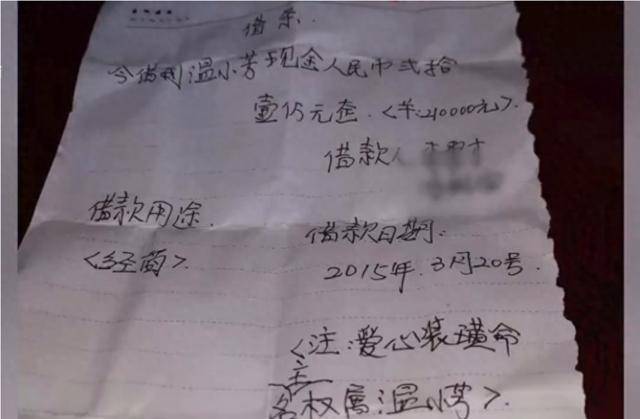 借条.
今借到温小芳现金人民币弍拾
壹万元整.<¥:210000元>.
借款人
借款用途.
<经商>.
借款日期:
2015年.3月20号.
<注:爱心装璜命
名权属:温小芳>.